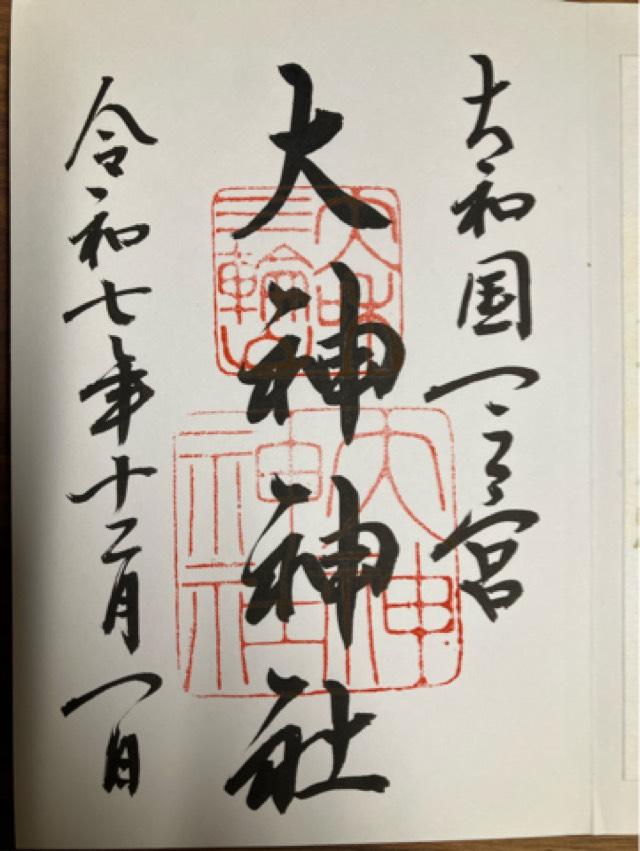 大和国一之宮
大神神社
大神神社
令和七年十二月一日